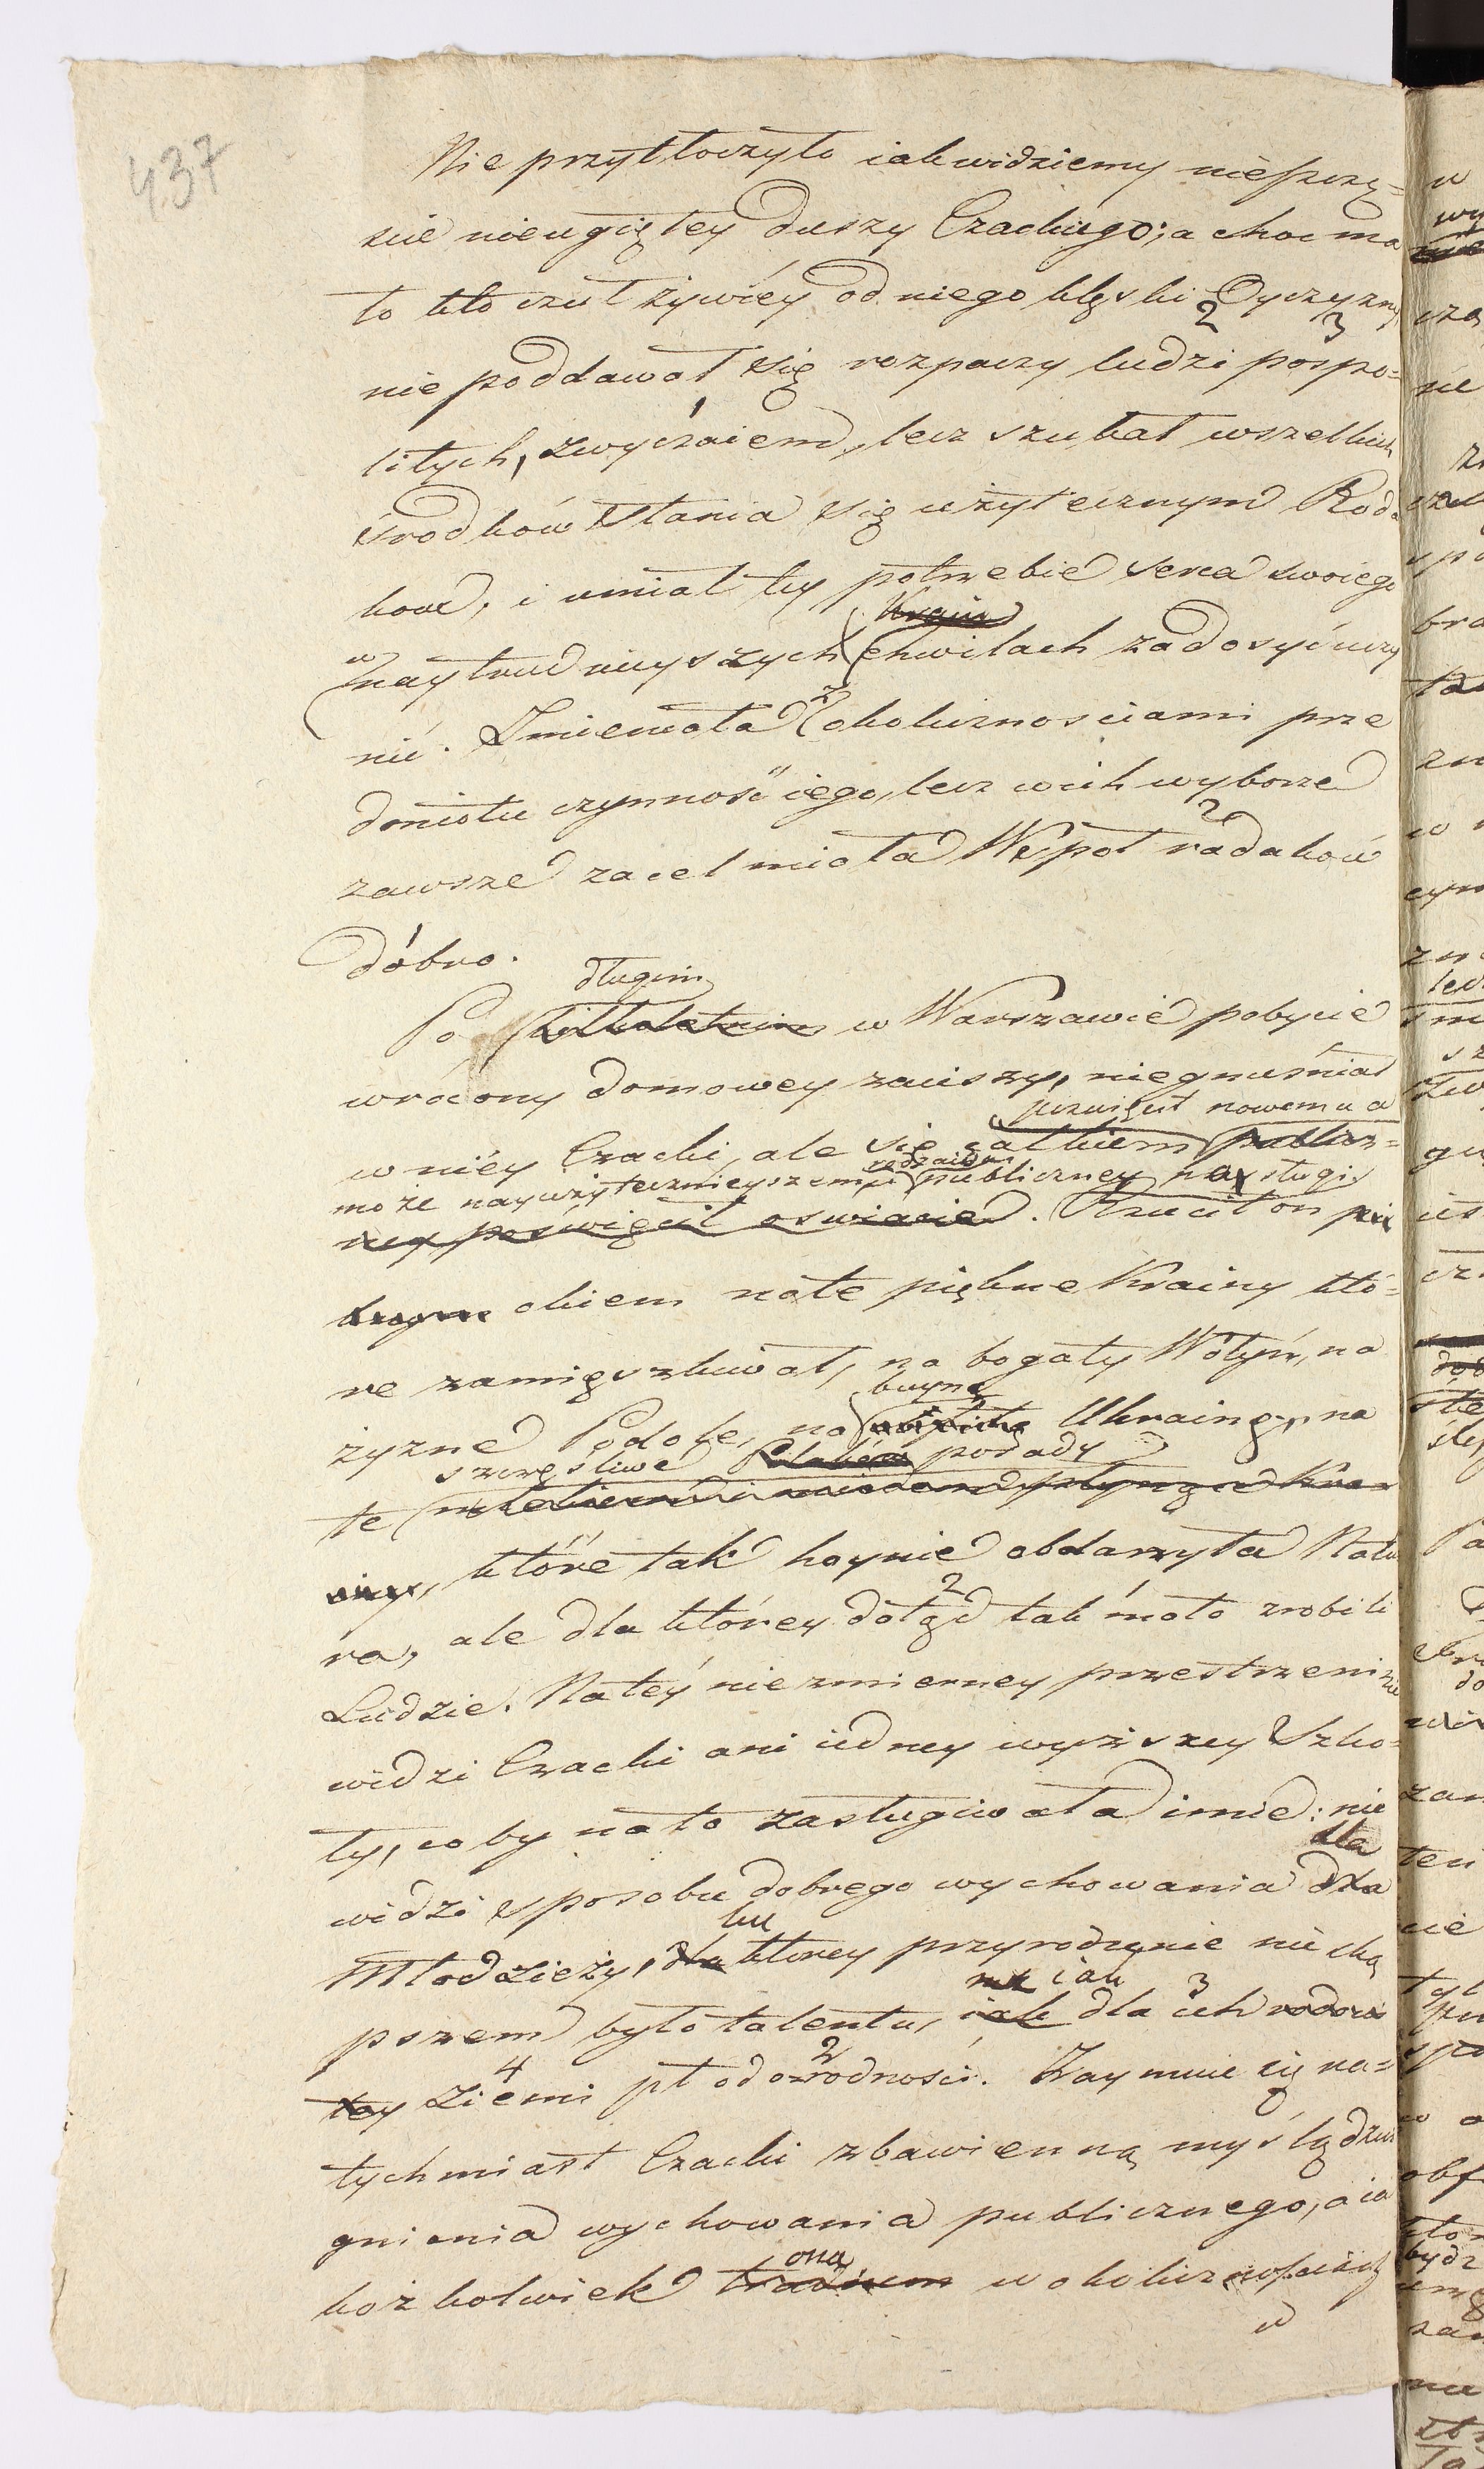 437
Nie przytłoczyło iak widziemy nieszczę=
scie nieugiętey duszy Czackiego; a choc ma
to kto czuł żywiéy od niego klęski Oyczyzny
2 3
nie poddawał się rozpaczy ludzi pospo=
1
litych, zwyczaiem, lecz szukał wszelkich
środków stania się użytecznym Roda
kom, i umiał tey potrzebie serca swoiego
Kraju
w naytrudnieyszych chwilach zadosyć uczy
nić. Zmieniała z okolicznosciami prze
dmiotu czynność iego, lecz w ich wyborze
2
zawsze za cel miała Wspoł rodaków
1
dóbro.
długim
Po kilkoletnim w Warszawie pobycie
wrócony domowey zaciszy, niegnuśniał
poswięcił nowemu a
w niéy Czacki, ale się całkiem publicz=
może nayużytecznieyszemu rodzaiowi publiczney przysługi
ney poswięcił oswiacie. Rzucił on
okiem na te piękne Krainy któ=
re zamięszkiwał, na bogaty Wołyń, na
buyną
żyzne Podole, na Ukrainę, na
szczęśliwe Polaków posady
te mlekiem i miodem płynące Kra
iny, które tak hoynie obdarzyła Natu
2 1
ra, ale dla którey dotąd tak mało zrobili
Ludzie. Na téy niezmierney przestrzeni nie
widzi Czacki ani iedney wyższey Szko=
ły, coby na to zasługiwała imie: nie
dla
widzi sposobu dobrego wychowania dla
ku
Młodzieży, dla ktorey przyrodzenie nie ską
iak 3
pszem było talentu, iak dla ich
4 2
tey Ziemi płodorodności. Zaymuie się na=
tychmiast Czacki zbawienną myślą dzwi
gnienia wychowania publicznego, a ia
oną
kożkolwiek trudnem w okolicznościach
w